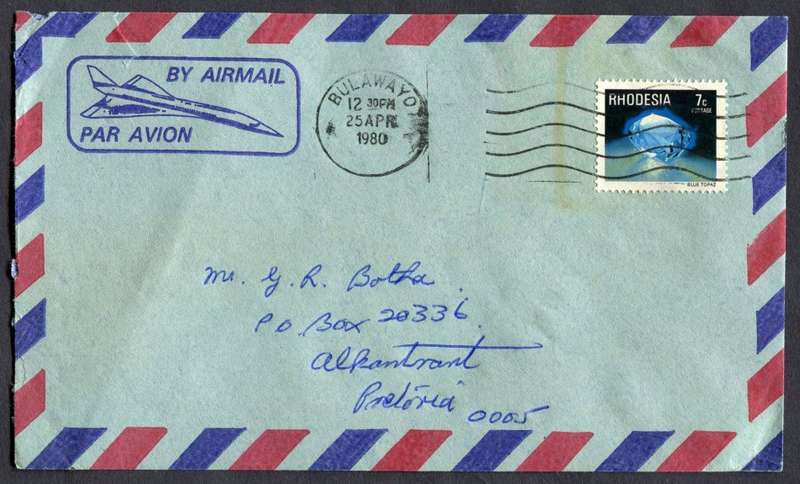 BY AIRMAIL
PAR AVION
BULAWAYO
12 30PM
25 APR
1980
RHODESIA 7c
POSTAGE
BLUE TOPAZ
Mr. G. R. Botha.
P O Box 20336.
Alkantrant
Pretoria 0005